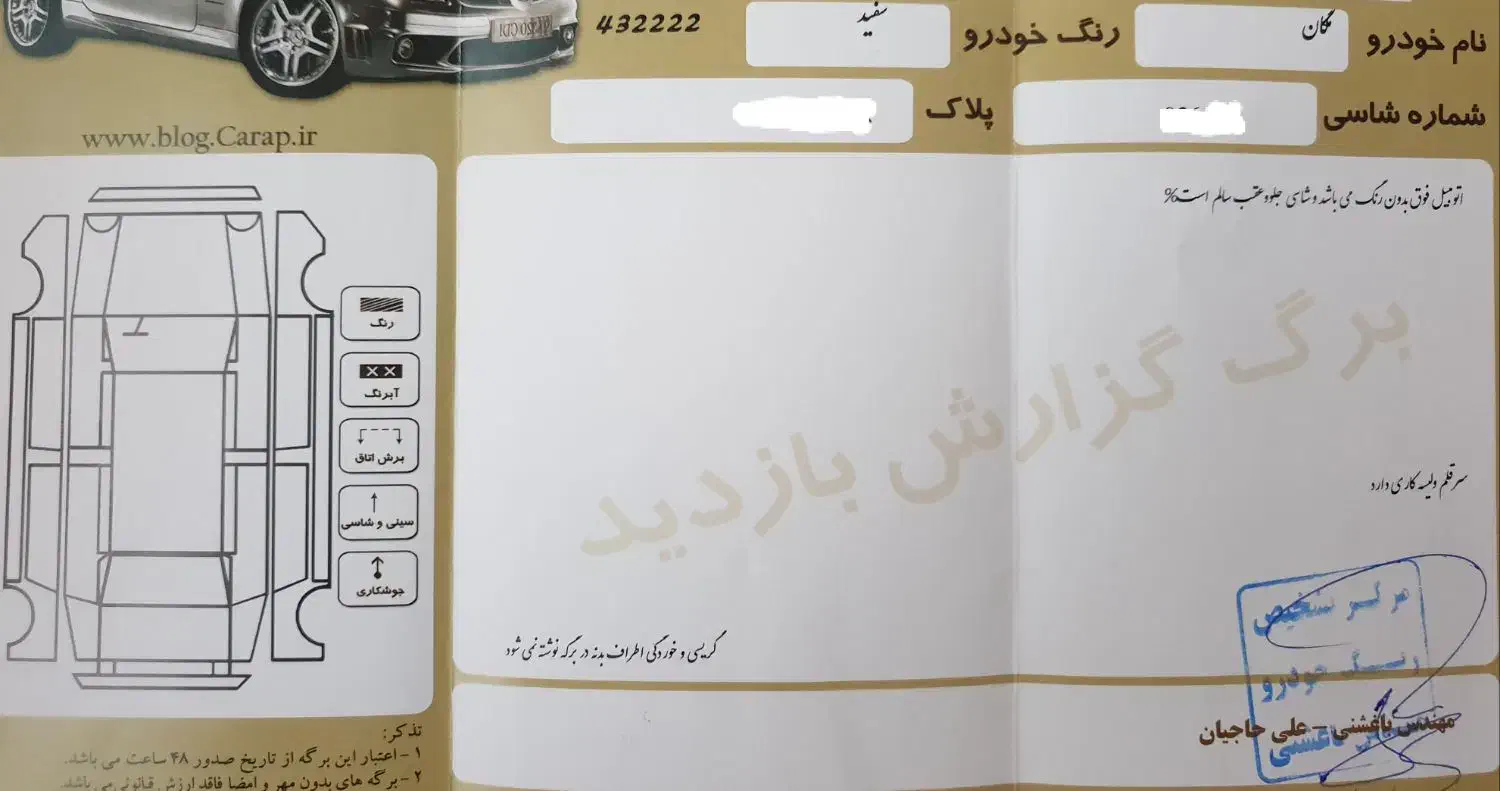 نام خودرو مگان رنگ خودرو سفید 432222
شماره شاسی پلاک
www.blog.Carap.ir
اتومبیل فوق بدون رنگ می باشد و شاسی جلو وعقب سالم است%
برگ گزارش بازدید
سرقلم ولیسه کاری دارد
گریسی و خوردگی اطراف بدنه در برگه نوشته نمی شود
رنگ
آبرنگ
برش اتاق
سینی و شاسی
جوشکاری
مرکز تشخیص
رنگ خودرو
باغشنی
مهندس باغشنی – علی حاجیان
تذکر:
۱ – اعتبار این برگه از تاریخ صدور ۴۸ ساعت می باشد.
۲ – برگه های بدون مهر و امضا فاقد ارزش قانونی می باشد.